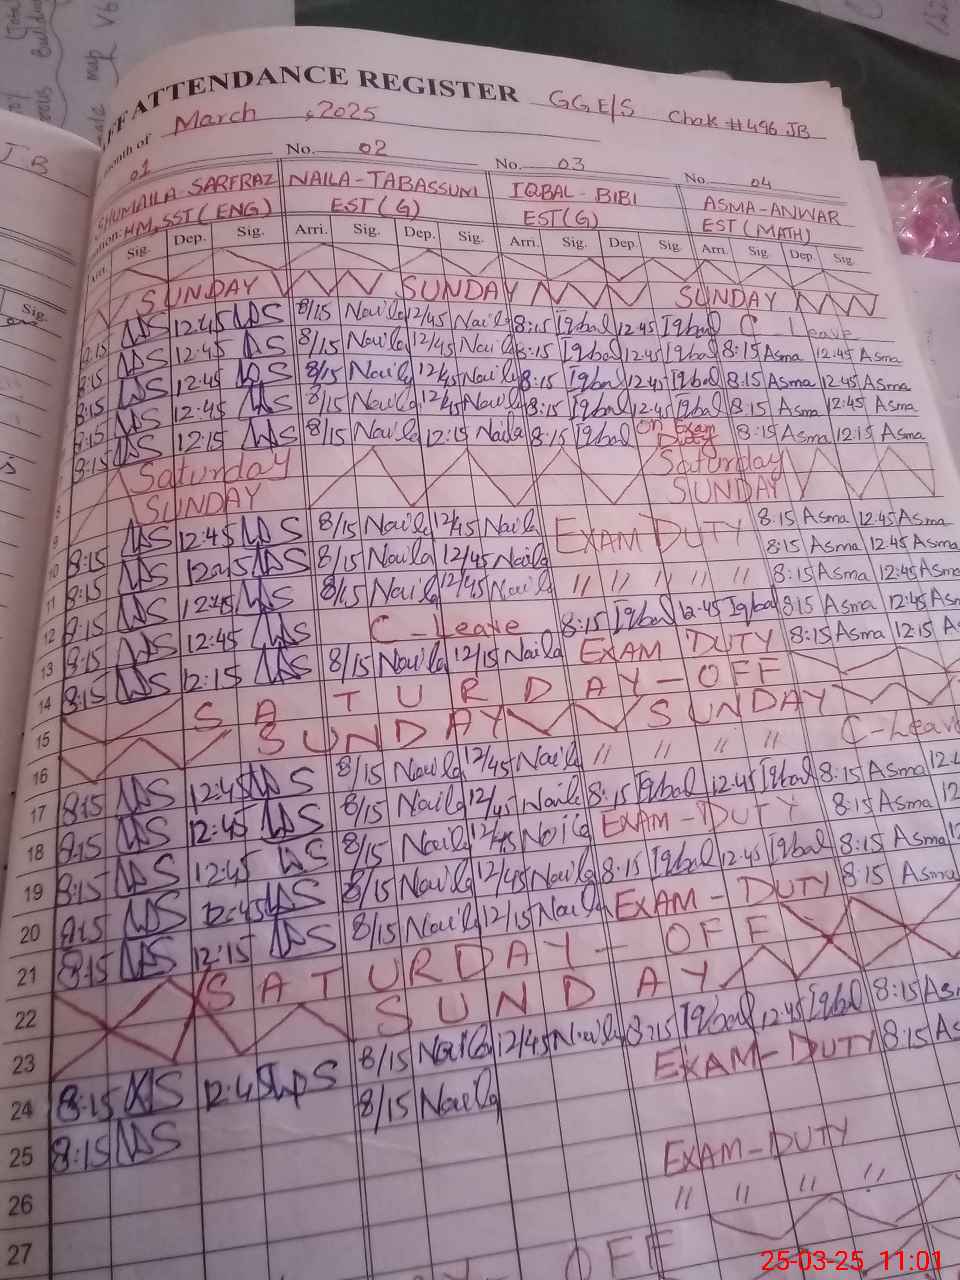 ATTENDANCE REGISTER GGE/S Chak #496 JB
month of March, 2025
01 No. 02 No. 03 No. 04
SHUMAILA-SARFRAZ NAILA-TABASSUM IQBAL-BIBI ASMA-ANWAR
HM, SST (ENG) EST(G) EST(G) EST(MATH)
Sig. Dep. Sig. Arri. Sig. Dep. Sig. Arri. Sig. Dep. Sig. Arri. Sig. Dep. Sig.
SUNDAY SUNDAY SUNDAY
8:15 12:45 8/15 Naila 12/45 Naila 8:15 Iqbal 12:45 Iqbal C Leave
8:15 12:45 8/15 Naila 12/45 Naila 8:15 Iqbal 12:45 Iqbal 8:15 Asma 12:45 Asma
8:15 12:45 8/15 Naila 12/45 Naila 8:15 Iqbal 12:45 Iqbal 8:15 Asma 12:45 Asma
8:15 12:45 8/15 Naila 12/45 Naila 8:15 Iqbal 12:45 Iqbal 8:15 Asma 12:45 Asma
8:15 12:15 8/15 Naila 12:15 Naila 8:15 Iqbal On Exam Duty 8:15 Asma 12:15 Asma
Saturday Saturday
8 SUNDAY SUNDAY
9 8:15 12:45 8/15 Naila 12/45 Naila EXAM DUTY 8:15 Asma 12:45 Asma
10 8:15 12:45 8/15 Naila 12/45 Naila 8:15 Asma 12:45 Asma
11 8:15 12:45 8/15 Naila 12/45 Naila // // // // // 8:15 Asma 12:45 Asma
12 8:15 12:45 C-Leave 8:15 Iqbal 12:45 Iqbal 8:15 Asma 12:45 Asm
13 8:15 12:15 8/15 Naila 12/15 Naila EXAM DUTY 8:15 Asma 12:15 As
14 SATURDAY-OFF
15 SUNDAY SUNDAY
16 8:15 12:45 8/15 Naila 12/45 Naila // // // // C-Leave
17 8:15 12:45 8/15 Naila 12/45 Naila 8:15 Iqbal 12:45 Iqbal 8:15 Asma 12:4
18 8:15 12:45 8/15 Naila 12/45 Naila EXAM-DUTY 8:15 Asma 12
19 8:15 12:45 8/15 Naila 12/45 Naila 8:15 Iqbal 12:45 Iqbal 8:15 Asma 12
20 8:15 12:15 8/15 Naila 12/15 Naila EXAM-DUTY 8:15 Asma
21 SATURDAY-OFF
22 SUNDAY
23 8:15 12:45 8/15 Naila 12/45 Naila 8:15 Iqbal 12:45 Iqbal 8:15 Asm
24 8:15 8/15 Naila EXAM-DUTY 8:15 As
25
26 EXAM-DUTY
27 // // // //
OFF
25-03-25 11:01